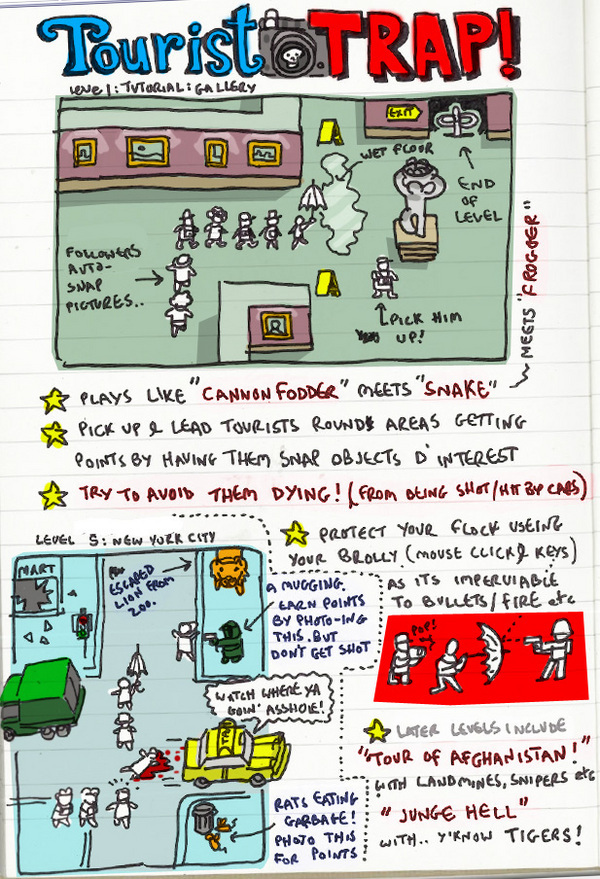 Tourist TRAP!
LEVEL 1: TUTORIAL: GALLERY
EXIT
WET FLOOR
END
OF
LEVEL
FOLLOWERS
AUTO-
SNAP
PICTURES..
PICK HIM
UP!
PLAYS LIKE "CANNON FODDER" MEETS "SNAKE"
MEETS "FROGGER"
PICK UP & LEAD TOURISTS ROUND AREAS GETTING
POINTS BY HAVING THEM SNAP OBJECTS D'INTEREST
TRY TO AVOID THEM DYING! (FROM BEING SHOT/HIT BY CABS)
LEVEL 5: NEW YORK CITY
PROTECT YOUR FLOCK USEING
YOUR BROLLY (MOUSE CLICK & KEYS)
AS ITS IMPERVIABLE
TO BULLETS/FIRE etc
MART
ESCAPED
LION FROM
ZOO.
A MUGGING.
EARN POINTS
BY PHOTO-ING
THIS. BUT
DON'T GET SHOT
POP!
WATCH WHERE YA
GOIN' ASSHOLE!
RATS EATING
GARBAGE!
PHOTO THIS
FOR POINTS
LATER LEVELS INCLUDE
"TOUR OF AFGHANISTAN!"
WITH LANDMINES, SNIPERS etc
"JUNGE HELL"
WITH.. Y'KNOW TIGERS!